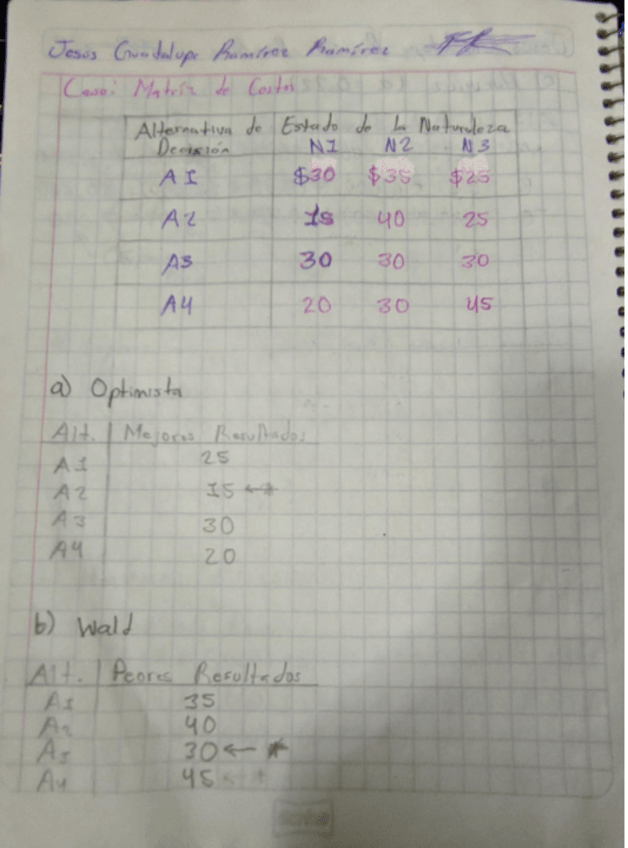 Jesus Guadalupe Ramírez Ramírez
Caso: Matriz de Costos
Alternativa de Estado de la Naturaleza
Decisión N1 N2 N3
A1 $30 $35 $25
A2 15 40 25
A3 30 30 30
A4 20 30 45
a) Optimista
Alt. Mejores Resultados
A1 25
A2 15 ←*
A3 30
A4 20
b) Wald
Alt. Peores Resultados
A1 35
A2 40
A3 30 ← *
A4 45